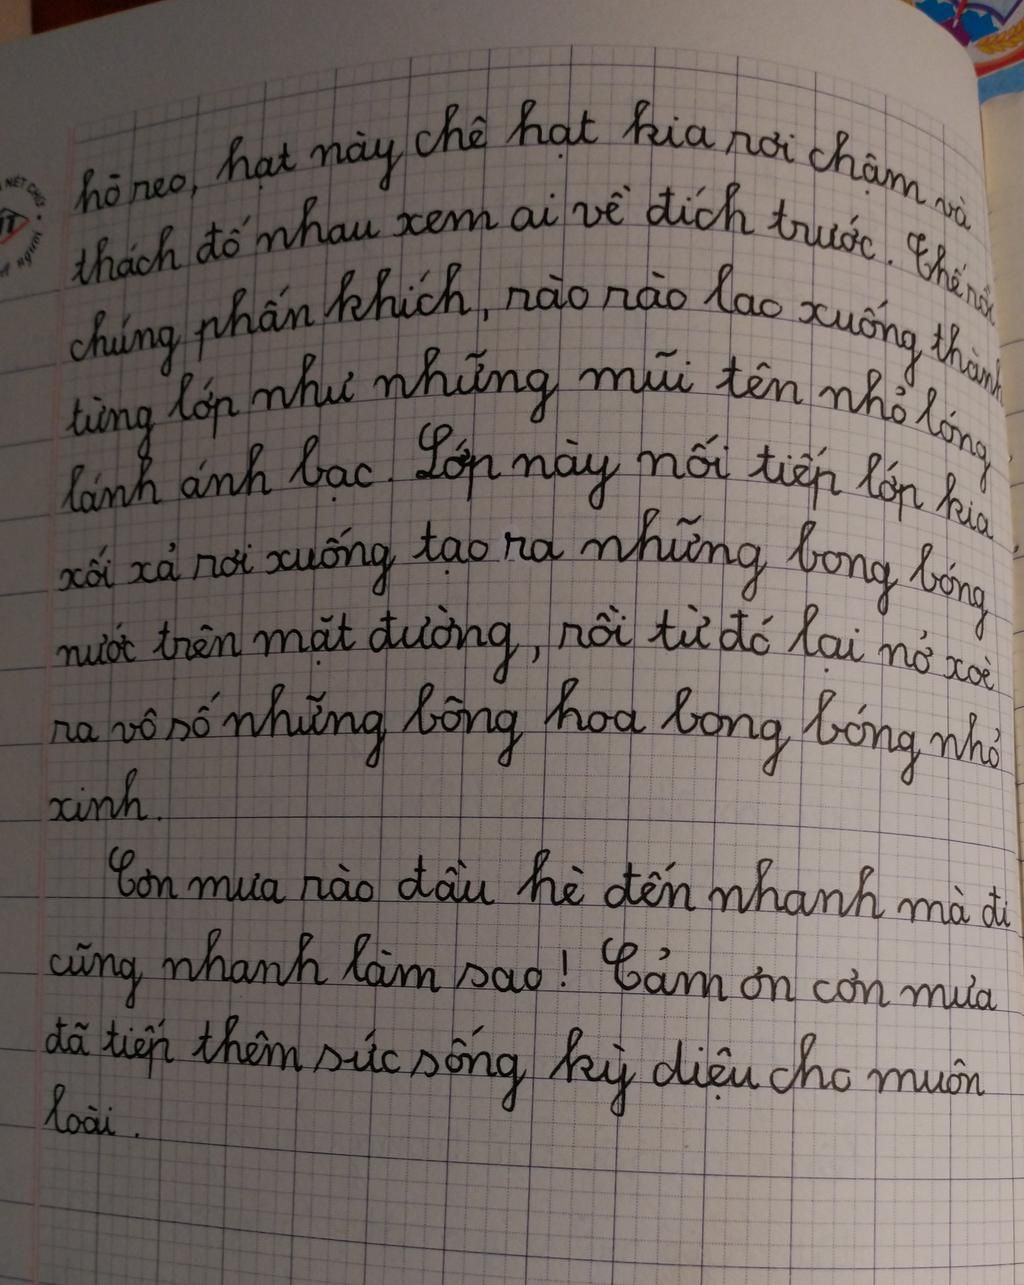 hò reo, hạt này chê hạt kia rơi chậm và
thách đố nhau xem ai về đích trước. Thế rồi
chúng phấn khích, rào rào lao xuống thành
từng lớp như những mũi tên nhỏ lóng
lánh ánh bạc. Lớp này nối tiếp lớp kia
xối xả rơi xuống tạo ra những bong bóng
nước trên mặt đường, rồi từ đó lại nở xoè
ra vô số những bông hoa bong bóng nhỏ
xinh.
Cơn mưa rào đầu hè đến nhanh mà đi
cũng nhanh làm sao! Cảm ơn cơn mưa
đã tiếp thêm sức sống kỳ diệu cho muôn
loài.
NÉT CHỮ